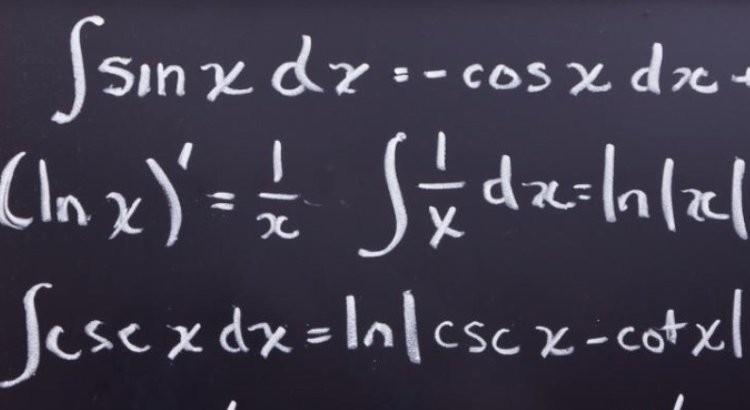 ∫ sin x dx = - cos x dx +
(ln x)' = 1/x ∫ 1/x dx = ln|x|
∫ csc x dx = ln|csc x - cot x|